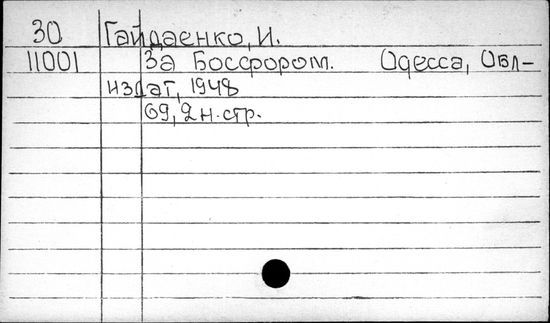 30 Гайдаенко, И.
11001 За Босфором. Одесса, Обл-
издат, 1948
69, 2 н. стр.